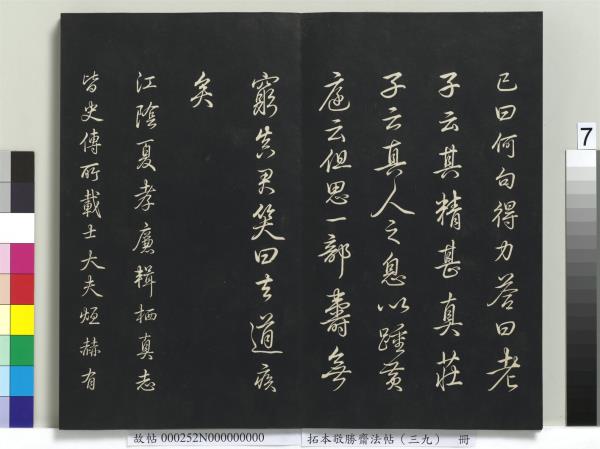 已曰何句得力答曰老
子云其精甚真莊
子云真人之息以踵黃
庭云但思一部壽無
窮真君笑曰去道
矣
江陰夏孝廉輯栖真志
皆史傳所載士大夫烜赫有
7
故帖 000252N000000000 拓本敬勝齋法帖(三九) 冊